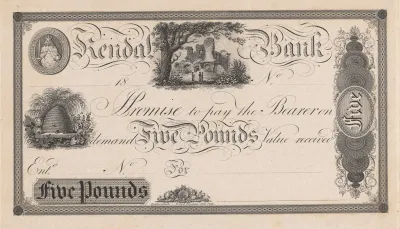 Kendal Bank
18 No
I Promise to pay the Bearer on
demand Five Pounds Value received
Entd. No. For
Five Pounds
Five